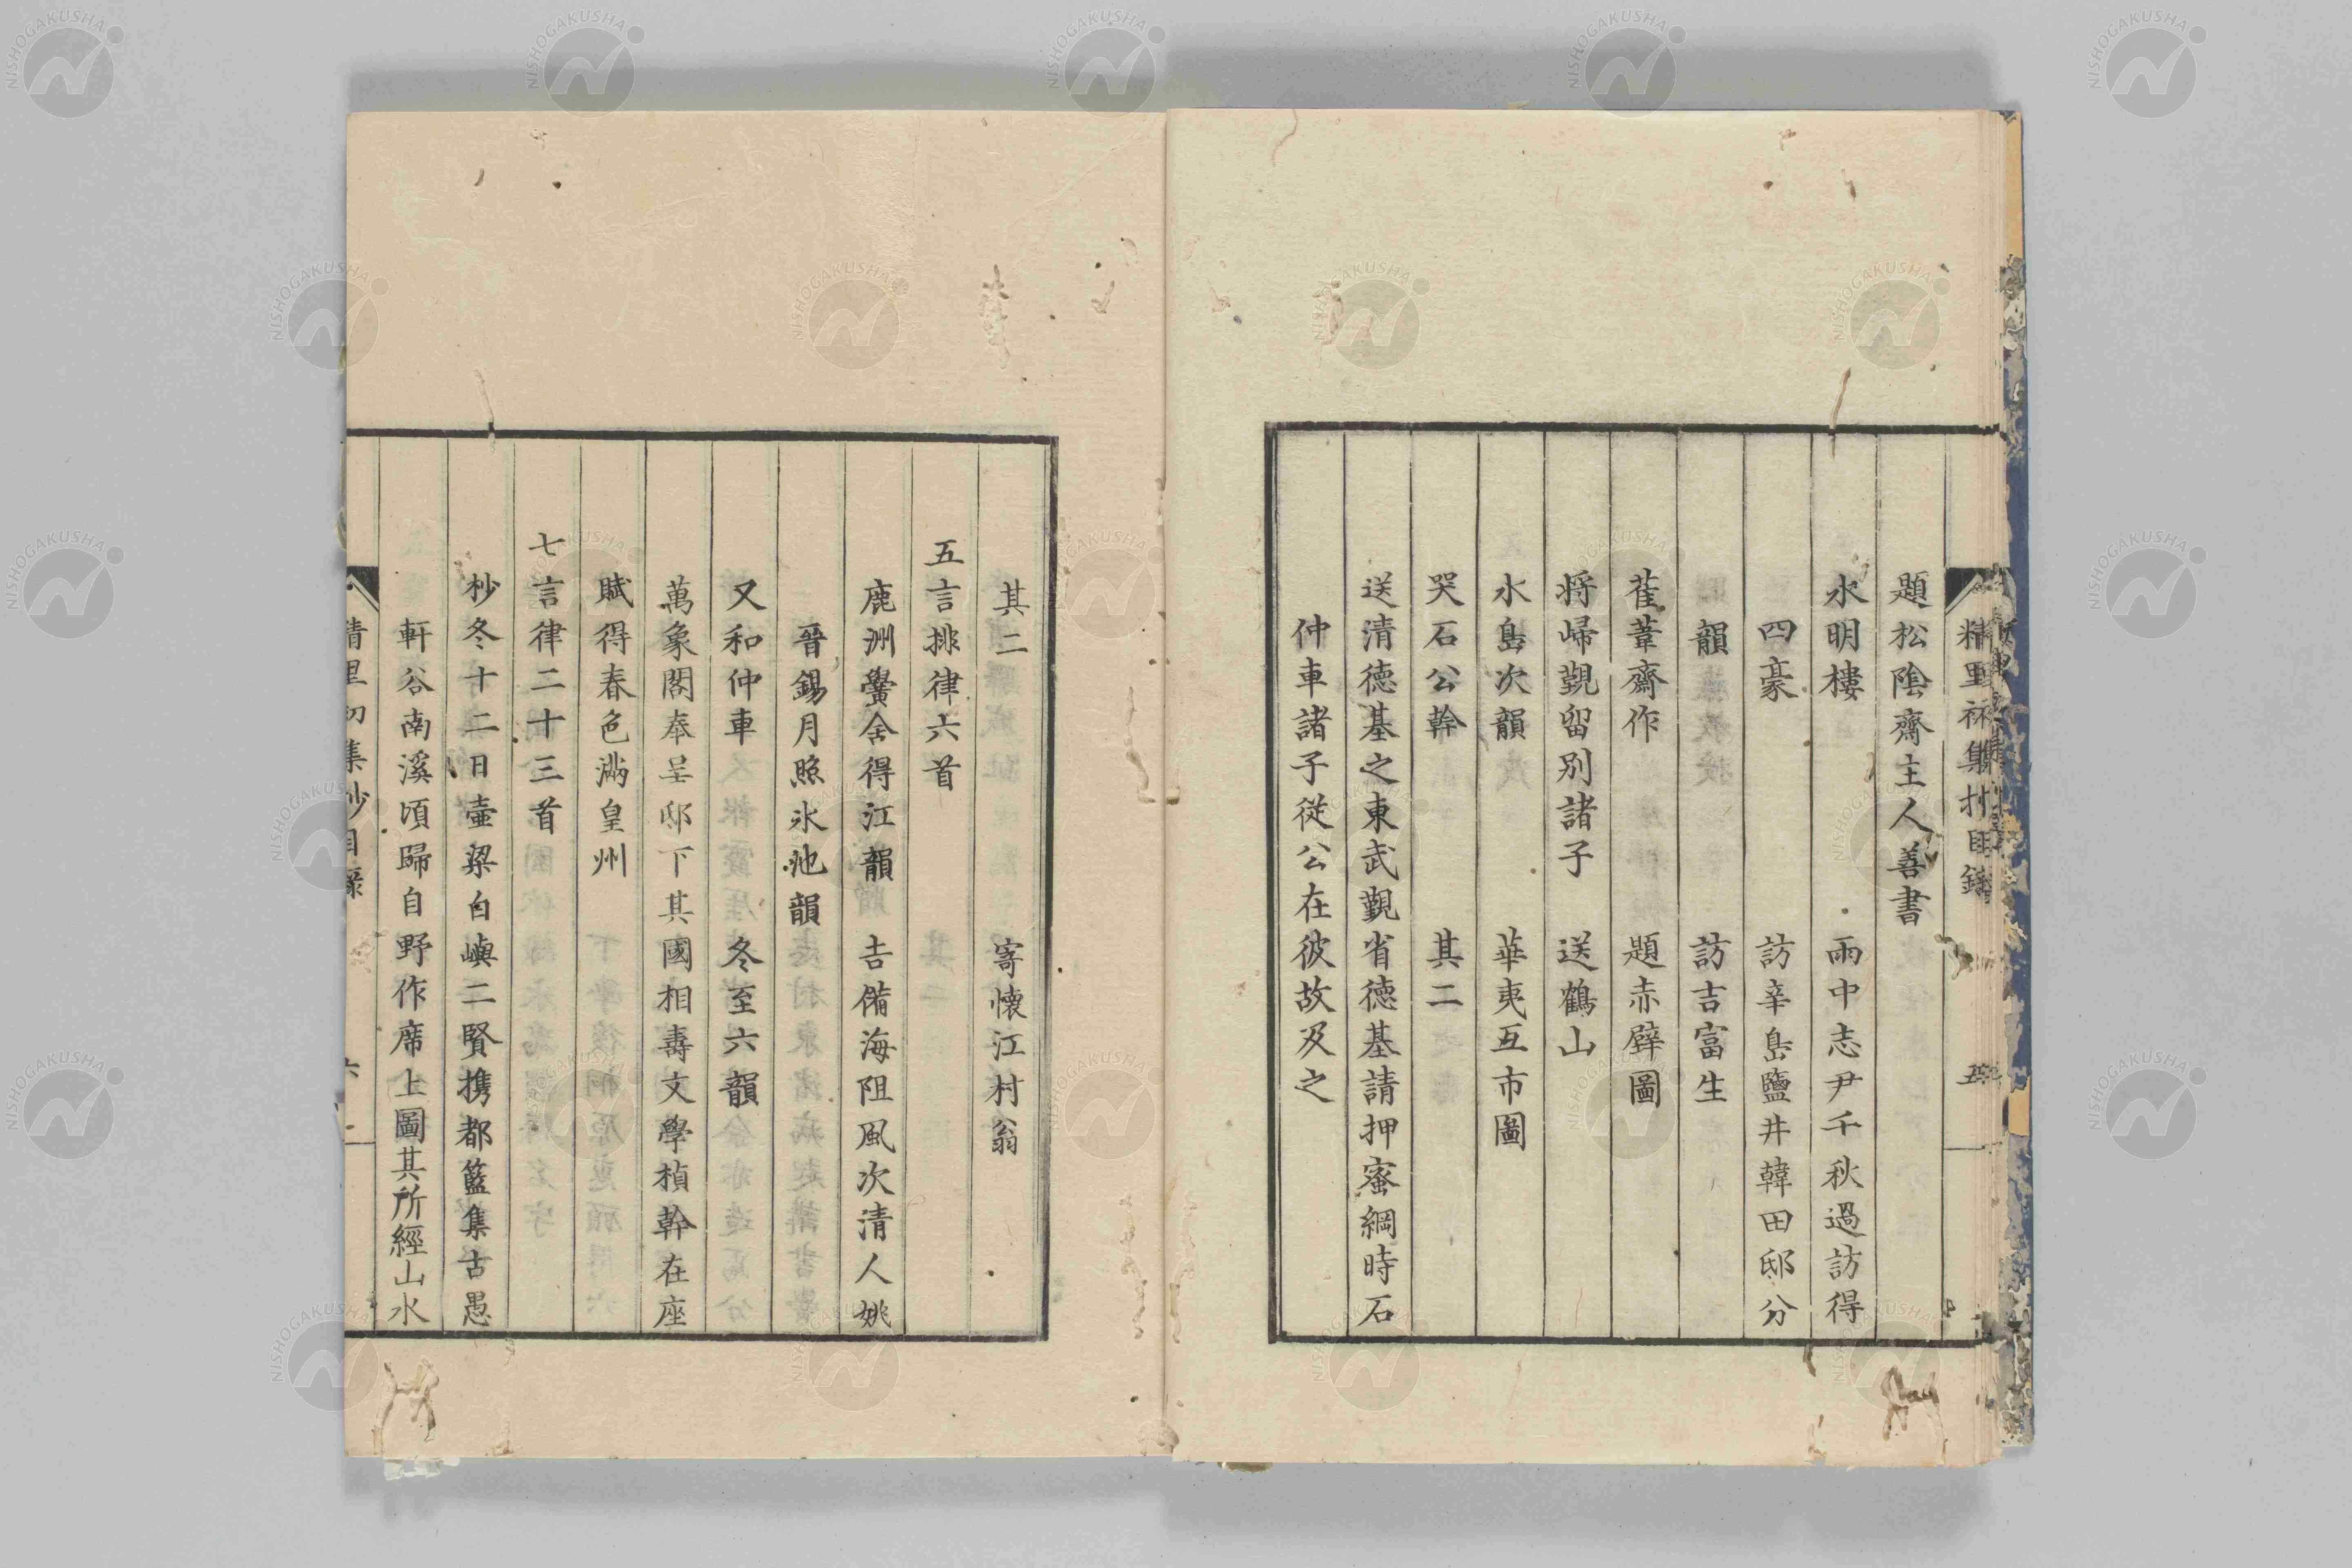 題松陰齋主人善書
水明樓　雨中志尹千秋過訪得
四豪　訪辛島鹽井韓田邸分
韻　訪吉富生
萑葦齋作　題赤壁圖
将歸覲留別諸子　送鶴山
水島次韻　華夷互市圖
哭石公幹　其二
送清德基之東武覲省德基請押蜜綱時石
仲車諸子従公在彼故及之
其二　寄懷江村翁
五言排律六首
鹿洲黌舍得江韻　吉備海阻風次清人姚
晉錫月照氷池韻
又和仲車　冬至六韻
萬象閣奉呈邸下其國相壽文學楨幹在座
賦得春色滿皇州
七言律二十三首
杪冬十二日壷梁白嶼二賢携都籃集古愚
軒谷南溪頃歸自野作席上圖其所經山水
精里初集抄目錄　五
精里初集抄目錄　六
NISHOGAKUSHA